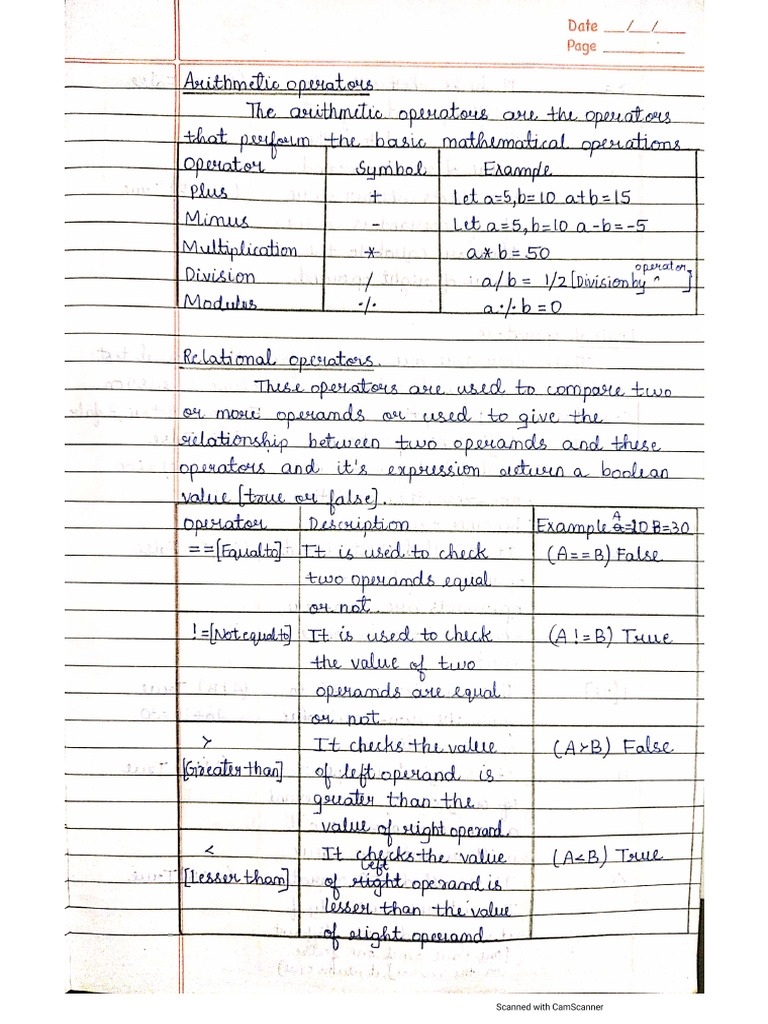 Date __/__/__
Page ________
Arithmetic operators
The arithmetic operators are the operators
that perform the basic mathematical operations
Operator Symbol Example
Plus + Let a=5,b=10 a+b=15
Minus - Let a=5,b=10 a-b=-5
Multiplication * a*b=50
Division / a/b= 1/2 [Division by operator]
Modules % a%b=0
Relational operators.
These operators are used to compare two
or more operands or used to give the
relationship between two operands and these
operators and it's expression return a boolean
value [true or false].
operator Description Example A=10 B=30
==[Equal to] It is used to check (A==B) False
two operands equal
or not
!=[Not equal to] It is used to check (A!=B) True
the value of two
operands are equal
or not
> It checks the value (A>B) False
[Greater than] of left operand is
greater than the
value of right operand
< It checks the value (A<B) True
left
[Lesser than] of right operand is
lesser than the value
of right operand
Scanned with CamScanner